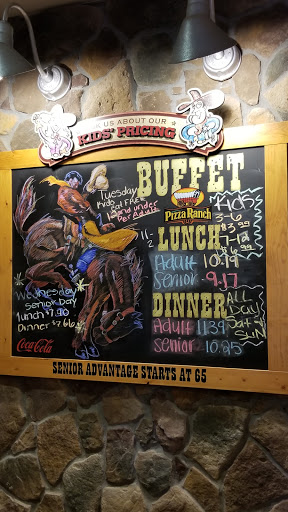 US ABOUT OUR
KIDS' PRICING
BUFFET
Pizza Ranch
Tuesday
Kids
eat FREE
Per Adult
Kids
3-6
$3.99
7-12
11-2
LUNCH
Adult 10.79
Senior 9.17
DINNER
Adult 11.39
Senior 10.25
ALL
Day
Sat &
SUN
Wednesday
Senior Day
lunch $7.90
Dinner $7.66
Coca-Cola
SENIOR ADVANTAGE STARTS AT 65